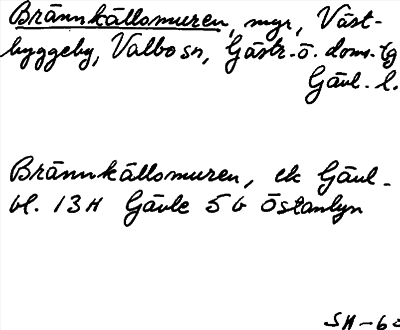 Brännkällsmuren, myr, Väst-
byggeby, Valbo sn, Gästr. ö. doms. tg
Gävl. l.
Brännkällsmuren, ek Gävl-
bl. 13H Gävle 5 b Östanlyn
SH-62